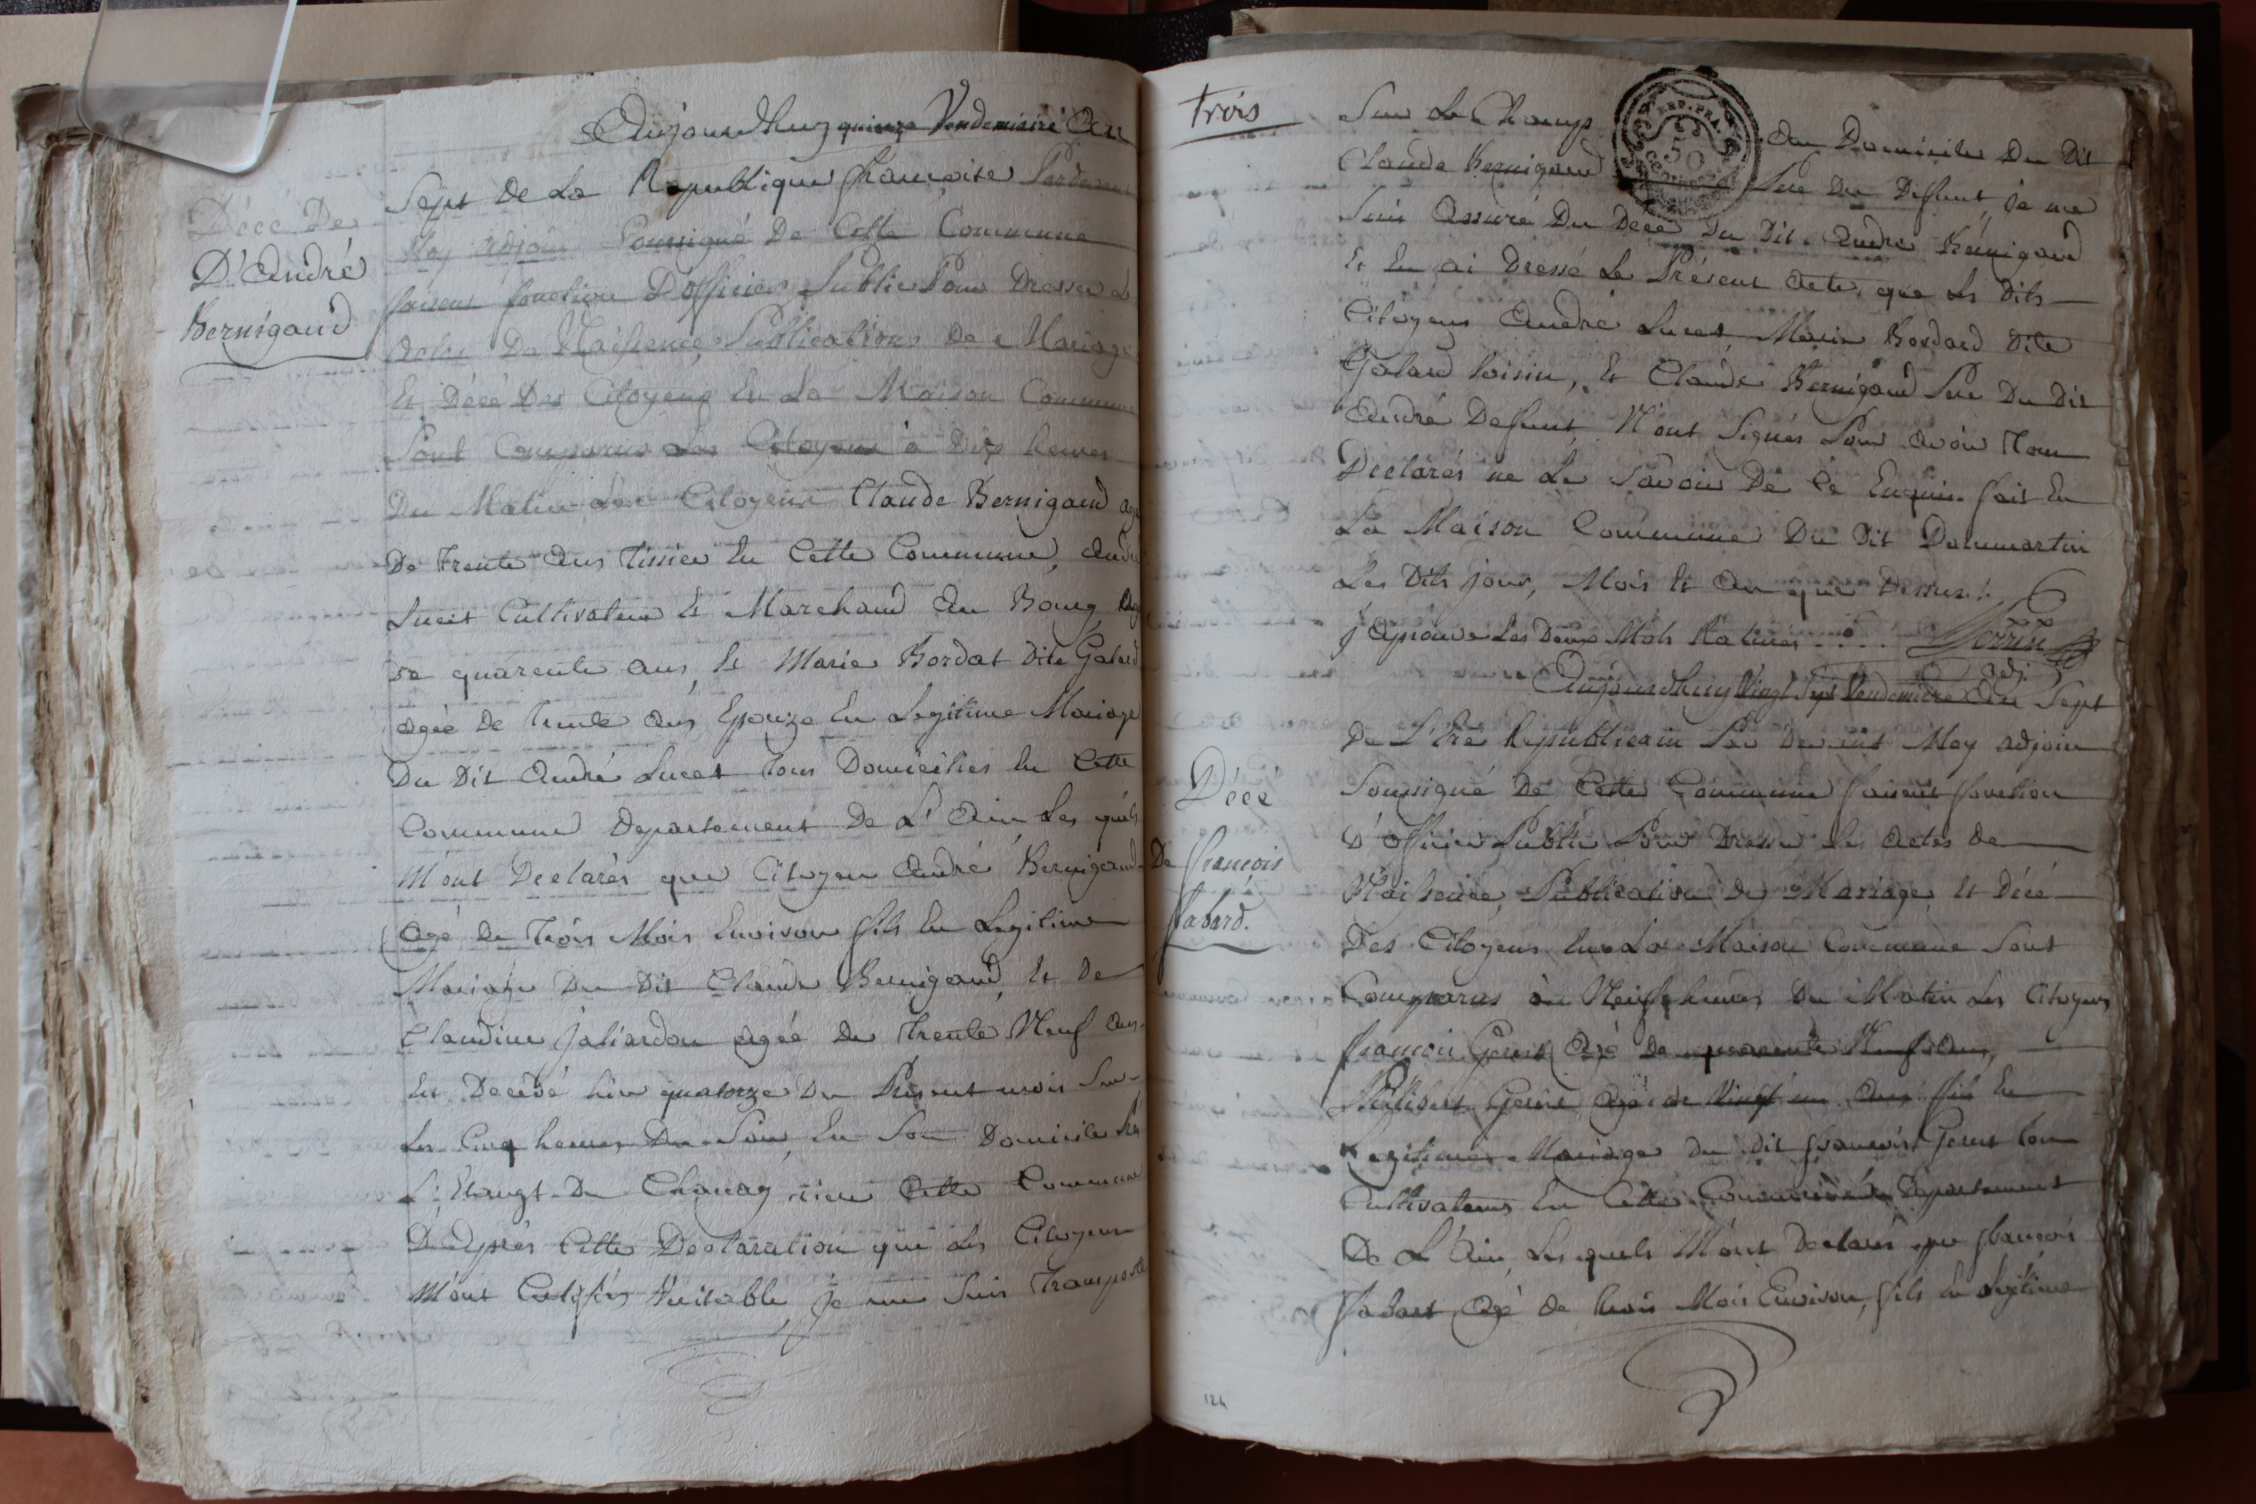 Décé De
D'André
Bernigaud
Aujourdhuy quinze Vendemiaire An
Sept de La Republique françoise Pardevant
Moy adjoin Soussigné De Cette Commune
faisent fonction D'officier Public Pour Dresser Les
Actes De Naissence, Publications De Mariage
Et Décé Des Citoyens En La Maison Commune
Sont Comparus Les Citoyens à Dix heures
Du Matin Les Citoyens Claude Bernigaud agé
De trente Ans Tissier En Cette Commune, André
Lucet Cultivateur Et Marchand Au Bourg, Agé
De quarente ans, Et Marie Bordat Dite Galand
agée De trente Ans Epouze En Legitime Mariage
Du Dit André Lucet tous Domiciliés En Cette
Commune Departement De L'Ain Les quels
M'ont Declarés que Citoyen André Bernigaud
Agé de trois Mois Environ fils En Legitime
Mariage Du Dit Claude Bernigaud, Et De
Claudine Jaliardon agée De trente Neuf ans
Est Decédé hier quatorze Du Présent mois Sur
Les Cinq heures Du Soir, En Son Domicile
L'Etangt Du Chanay, Cette Commune
D'Après Cette Declaration que Les Citoyens
M'ont Certifiés Véritable, je me Suis Transporté
trois
Sur Le Champ Au Domicile Du Dit
Claude Bernigaud Pere Du Defunt, je me
Suis Assuré Du Décé Du Dit André Bernigaud
Et En ai Dressé Le Présent Acte, que Les Dits
Citoyens André Lucet, Marie Bordard Dite
Galand Voisin, Et Claude Bernigaud Pere Du Dit
André Defunt, N'ont Signés Pour Avoir Tous
Declarés ne Le Savoir De Ce Enquis. fait En
La Maison Commune Du Dit Dommartin
Les Dits jour, Mois Et An que Dessus.
J'aprouve Les Deux Mots
Perrin
Adj.
Aujourdhuy Vingt Sept Vendemiaire An Sept
De L'Ere Republicain Par Devent Moy adjoin
Soussigné De Cette Commune faisent fonction
D'officier Public Pour Dresser Les Actes de
Naissence, Publication de Mariage Et Décé
Des Citoyens En La Maison Commune Sont
Comparus à Neuf heures Du Matin Les Citoyens
françois Agé De quarente Neuf Ans,
Philibert agé de Vingt un Ans fils En
Legitime Mariage Du Dit françois tous
Cultivateurs En Cette Commune Departement
De L'Ain, Les quels M'ont Declarés que françois
Agé de trois Mois Environ, fils En Legitime
Décé
De françois
124
50